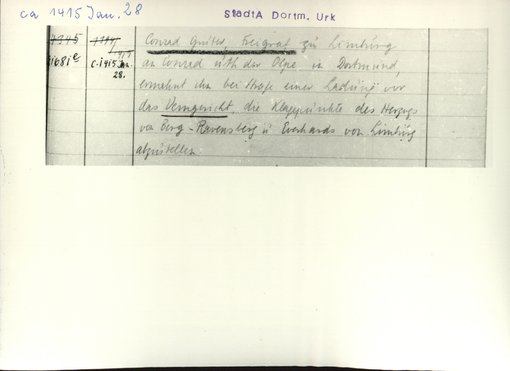 ca 1415 Jan. 28 StadtA Dortm. Urk
Conrad Gruter, Freigraf zu Limburg
1681e c. 1415 Jan. 28. an Conrad uth der Olpe in Dortmund,
ermahnt ihn bei Strafe einer Ladung vor
das Vemgericht, die Klagepunkte des Herzogs
von Berg-Ravensberg u Everhards von Limburg
abzustellen